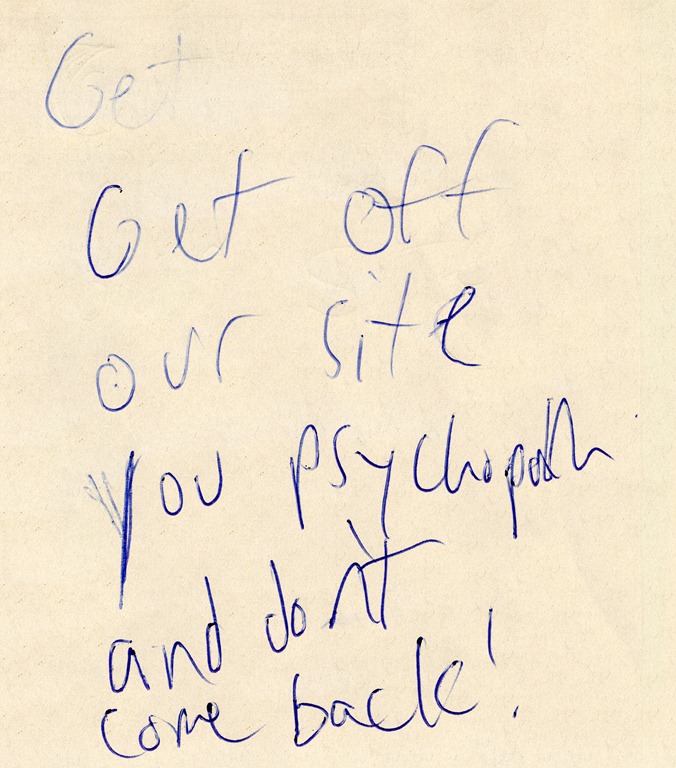 Get
Get off
our site
you psychopath
and don't
come back!